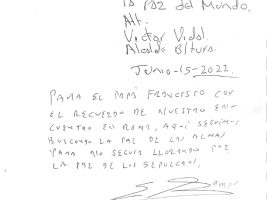 la Paz del Mundo.
Att.
Victor Vidal.
Alcalde B/tura.
Junio-15-2022.
PARA EL PAPA FRANCISCO CON
EL RECUERDO DE NUESTRO EN-
CUENTRO EN ROMA, AQUÍ SEGUIMOS
BUSCANDO LA PAZ DE LAS ALMAS
PARA NO SEGUIR LLORANDO POR
LA PAZ DE LOS SEPULCROS.